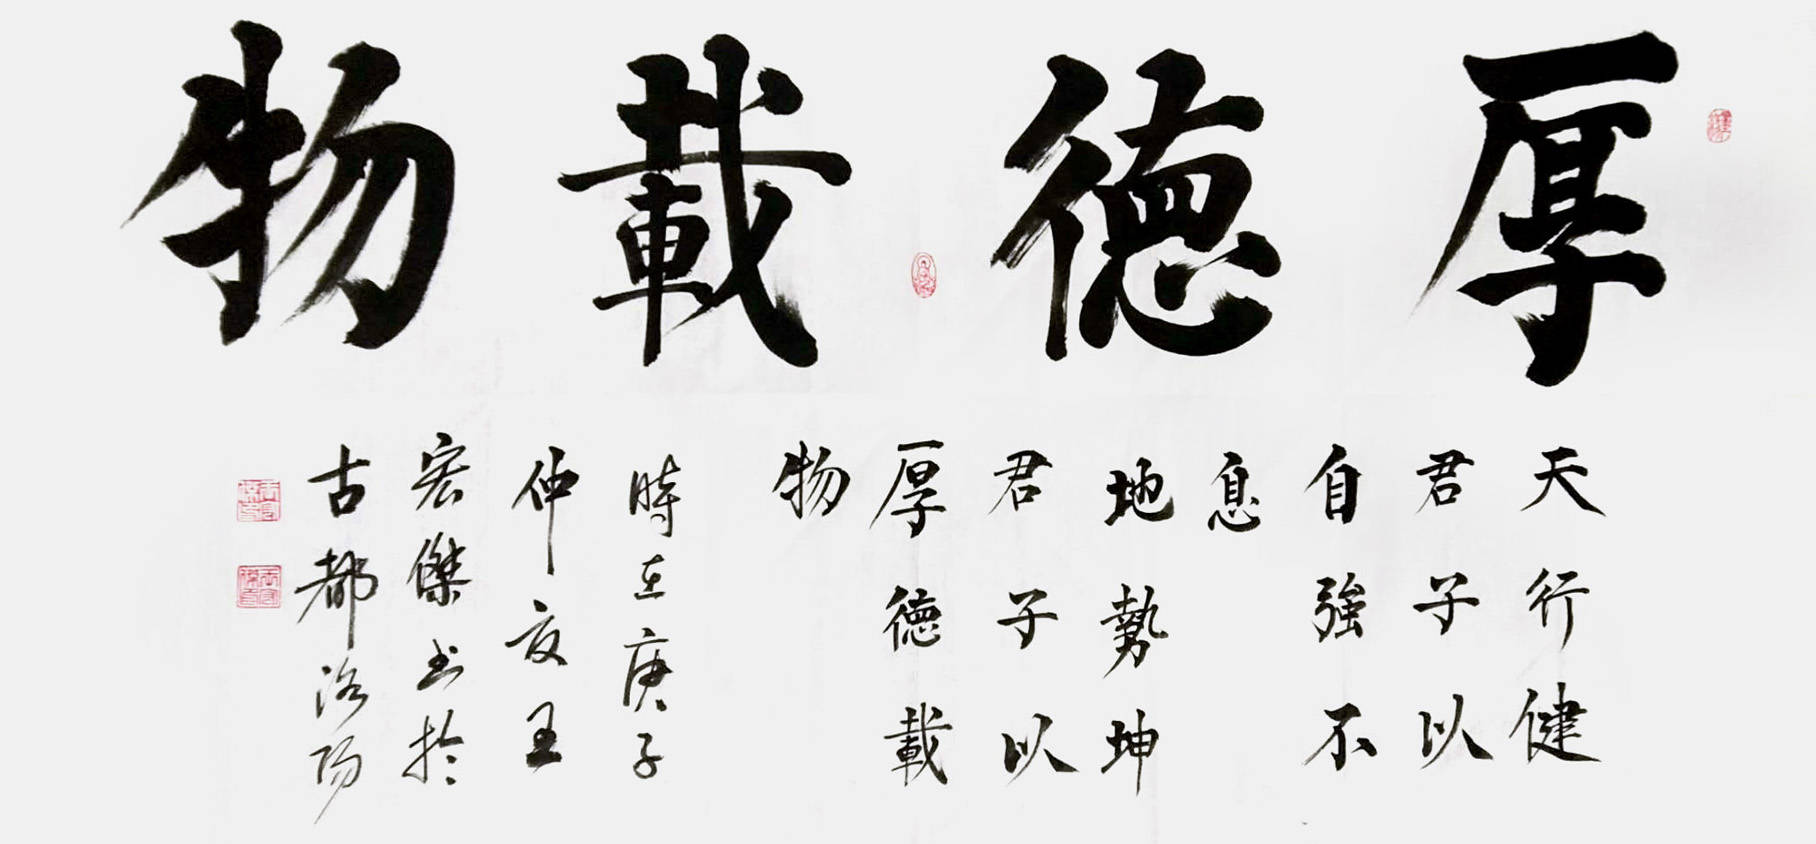 厚德載物
天行健
君子以
自強不
息
地勢坤
君子以
厚德載
物
時在庚子
仲夏王
宏傑书於
古都洛陽